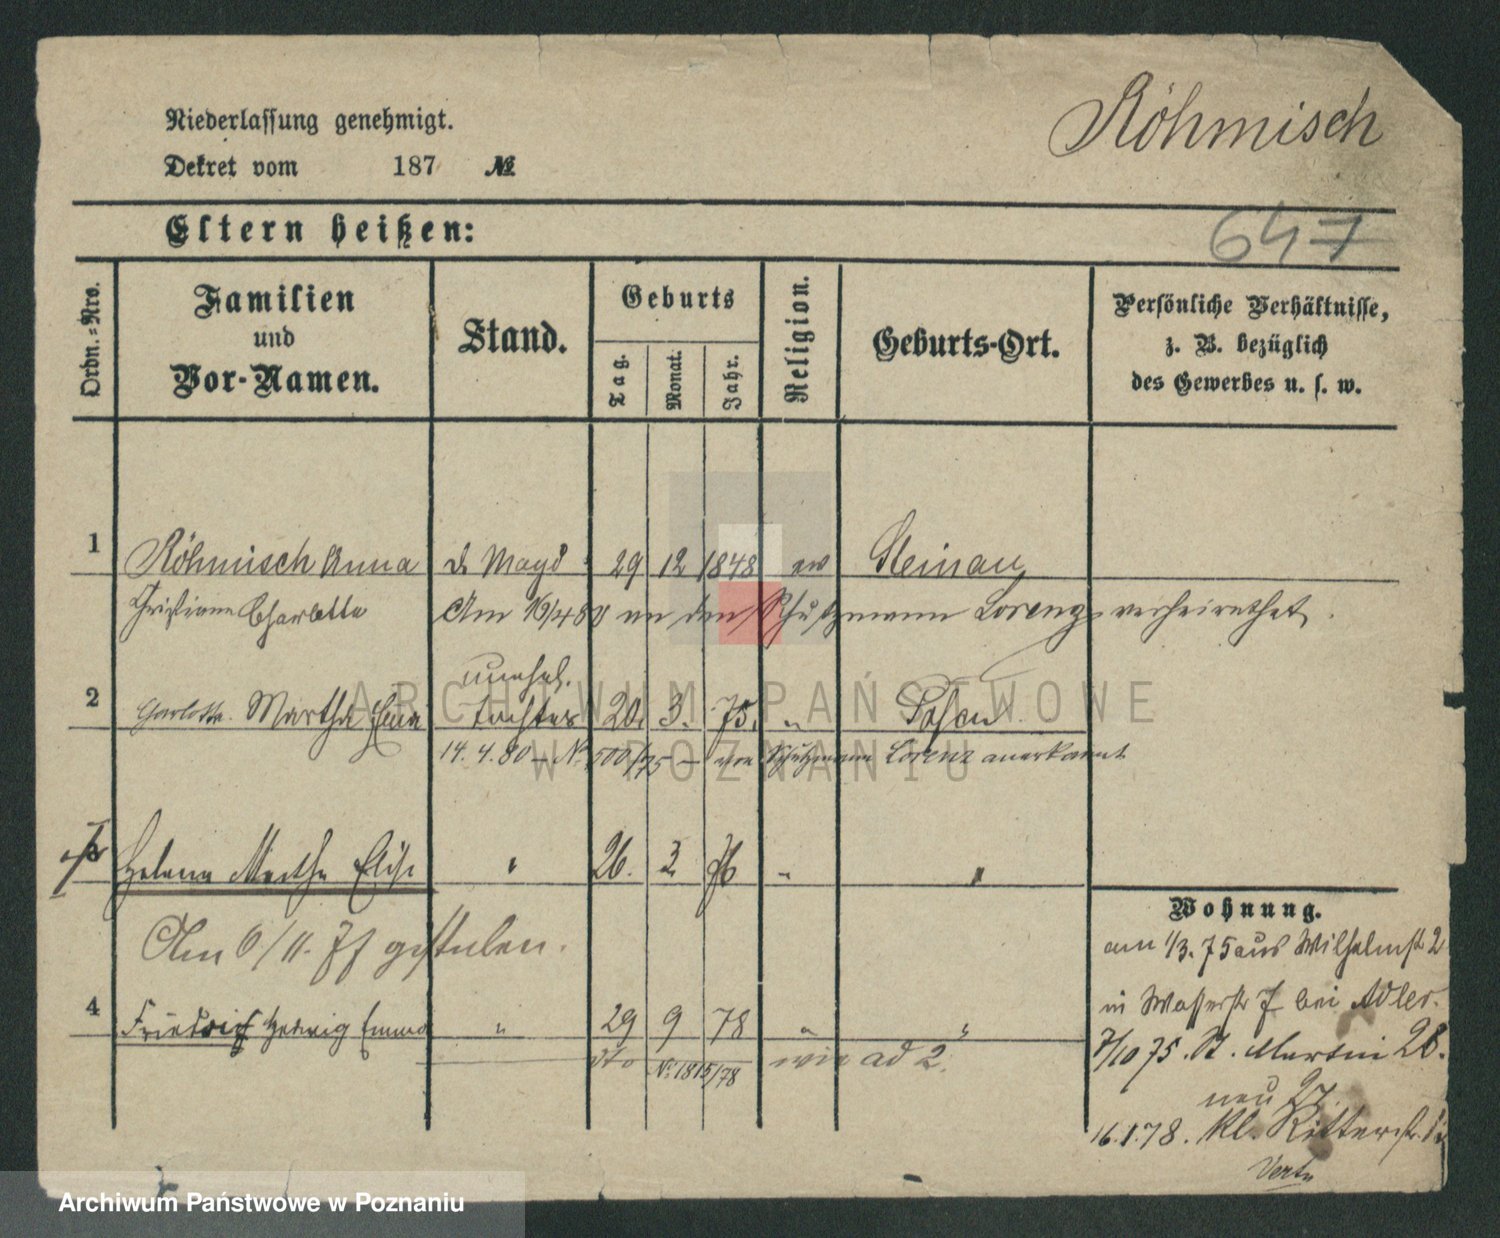 Niederlassung genehmigt.
Röhmisch
Dekret vom 187 №
Eltern heißen:
647
Ordn.=Nro.
Familien und Vor-Namen.
Stand.
Geburts
Tag.
Monat.
Jahr.
Religion.
Geburts-Ort.
Persönliche Verhältnisse,
z. B. bezüglich
des Gewerbes u. s. w.
1 Röhmisch Anna d. Magd 29 12 1848 ev Steinau
Christiane Charlotte
Am 16/4 80 an den Schutzmann Lorenz verheirathet.
2 Charlotte Martha unehel. Tochter 20. 3. 75. " Posen
14. 4. 80 – No. 500/75 – von Schutzmann Lorenz anerkannt
3 Helene Martha Elise " 26. 3 76 " "
Am 6/11. 77 gestorben.
4 Friedrich Hedwig Emma " 29 9 78 " "
dto No. 1815/78 wie ad 2.
Wohnung.
am 1/3. 75 aus Wilhelmst 2
in Wasserstr 7 bei Adler.
7/10 75. St. Martin 28.
neu 27.
16.1.78. Kl. Ritterstr.
Verte
ARCHIWUM PAŃSTWOWE
W POZNANIU
Archiwum Państwowe w Poznaniu